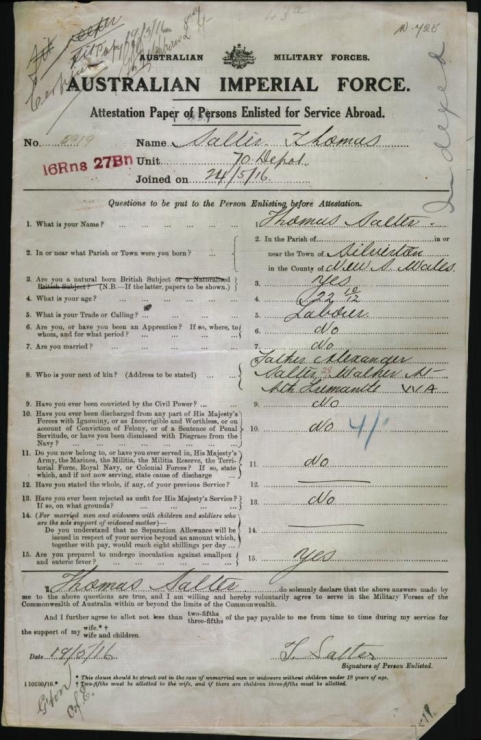 AUSTRALIAN MILITARY FORCES.
AUSTRALIAN IMPERIAL FORCE.
Attestation Paper of Persons Enlisted for Service Abroad.
No. 5919 Name Salter Thomas
16Rns 27Bn
Unit 70 Depot
Joined on 24/5/16
Indexed
Questions to be put to the Person Enlisting before Attestation.
1. What is your Name? Thomas Salter
2. In or near what Parish or Town were you born? 2. In the Parish of in or
near the Town of Silverton
in the County of New S. Wales
3. Are you a natural born British Subject or a Naturalised
British Subject? (N.B.—If the latter, papers to be shown.) 3. Yes
4. What is your age? 4. 22
5. What is your Trade or Calling? 5. Labourer
6. Are you, or have you been an Apprentice? If so, where, to
whom, and for what period? 6. No
7. Are you married? 7. No
8. Who is your next of kin? (Address to be stated) Father Alexander
Salter Walker St
Fremantle WA
9. Have you ever been convicted by the Civil Power? 9. No
10. Have you ever been discharged from any part of His Majesty's
Forces with Ignominy, or as Incorrigible and Worthless, or on
account of Conviction of Felony, or of a Sentence of Penal
Servitude, or have you been dismissed with Disgrace from the
Navy? 10. No
11. Do you now belong to, or have you ever served in, His Majesty's
Army, the Marines, the Militia, the Militia Reserve, the Terri-
torial Force, Royal Navy, or Colonial Forces? If so, state
which, and if not now serving, state cause of discharge 11. No
12. Have you stated the whole, if any, of your previous Service? 12.
13. Have you ever been rejected as unfit for His Majesty's Service?
If so, on what grounds? 13. No
14. (For married men, and widowers with children and soldiers who
are the sole support of widowed mother—
Do you understand that no Separation Allowance will be
issued in respect of your service beyond an amount which,
together with pay, would reach eight shillings per day 14.
15. Are you prepared to undergo inoculation against smallpox
and enteric fever? 15. Yes
I, Thomas Salter do solemnly declare that the above answers made by
me to the above questions are true, and I am willing and hereby voluntarily agree to serve in the Military Forces of the
Commonwealth of Australia within or beyond the limits of the Commonwealth.
And I further agree to allot not less than two-fifths
three-fifths of the pay payable to me from time to time during my service for
the support of my wife.*†
wife and children.
Date 19/5/16 T. Salter
Signature of Person Enlisted.
* This clause should be struck out in the case of unmarried men or widowers without children under 18 years of age.
† Two-fifths must be allotted to the wife, and if there are children three-fifths must be allotted.